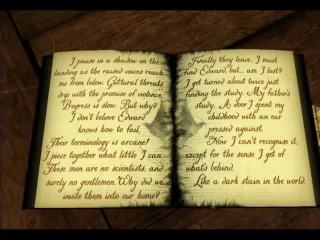 I pause in a shadow on the
landing as the raised voices reach
me from below. Guttural threats
drip with the promise of violence.
Progress is slow. But why?
I don't believe Edward
knows how to fail.
Their terminology is arcane?
I piece together what little I can.
These men are no scientists, and
surely no gentlemen. Why did we
invite them into our home?
Finally they leave. I must
find Edward, but... am I lost?
I get turned about twice just
finding the study. My father's
study. A door I spent my
childhood with an ear
pressed against.
Now I can't recognise it,
except for the sense I get of
what's behind.
Like a dark stain in the world.